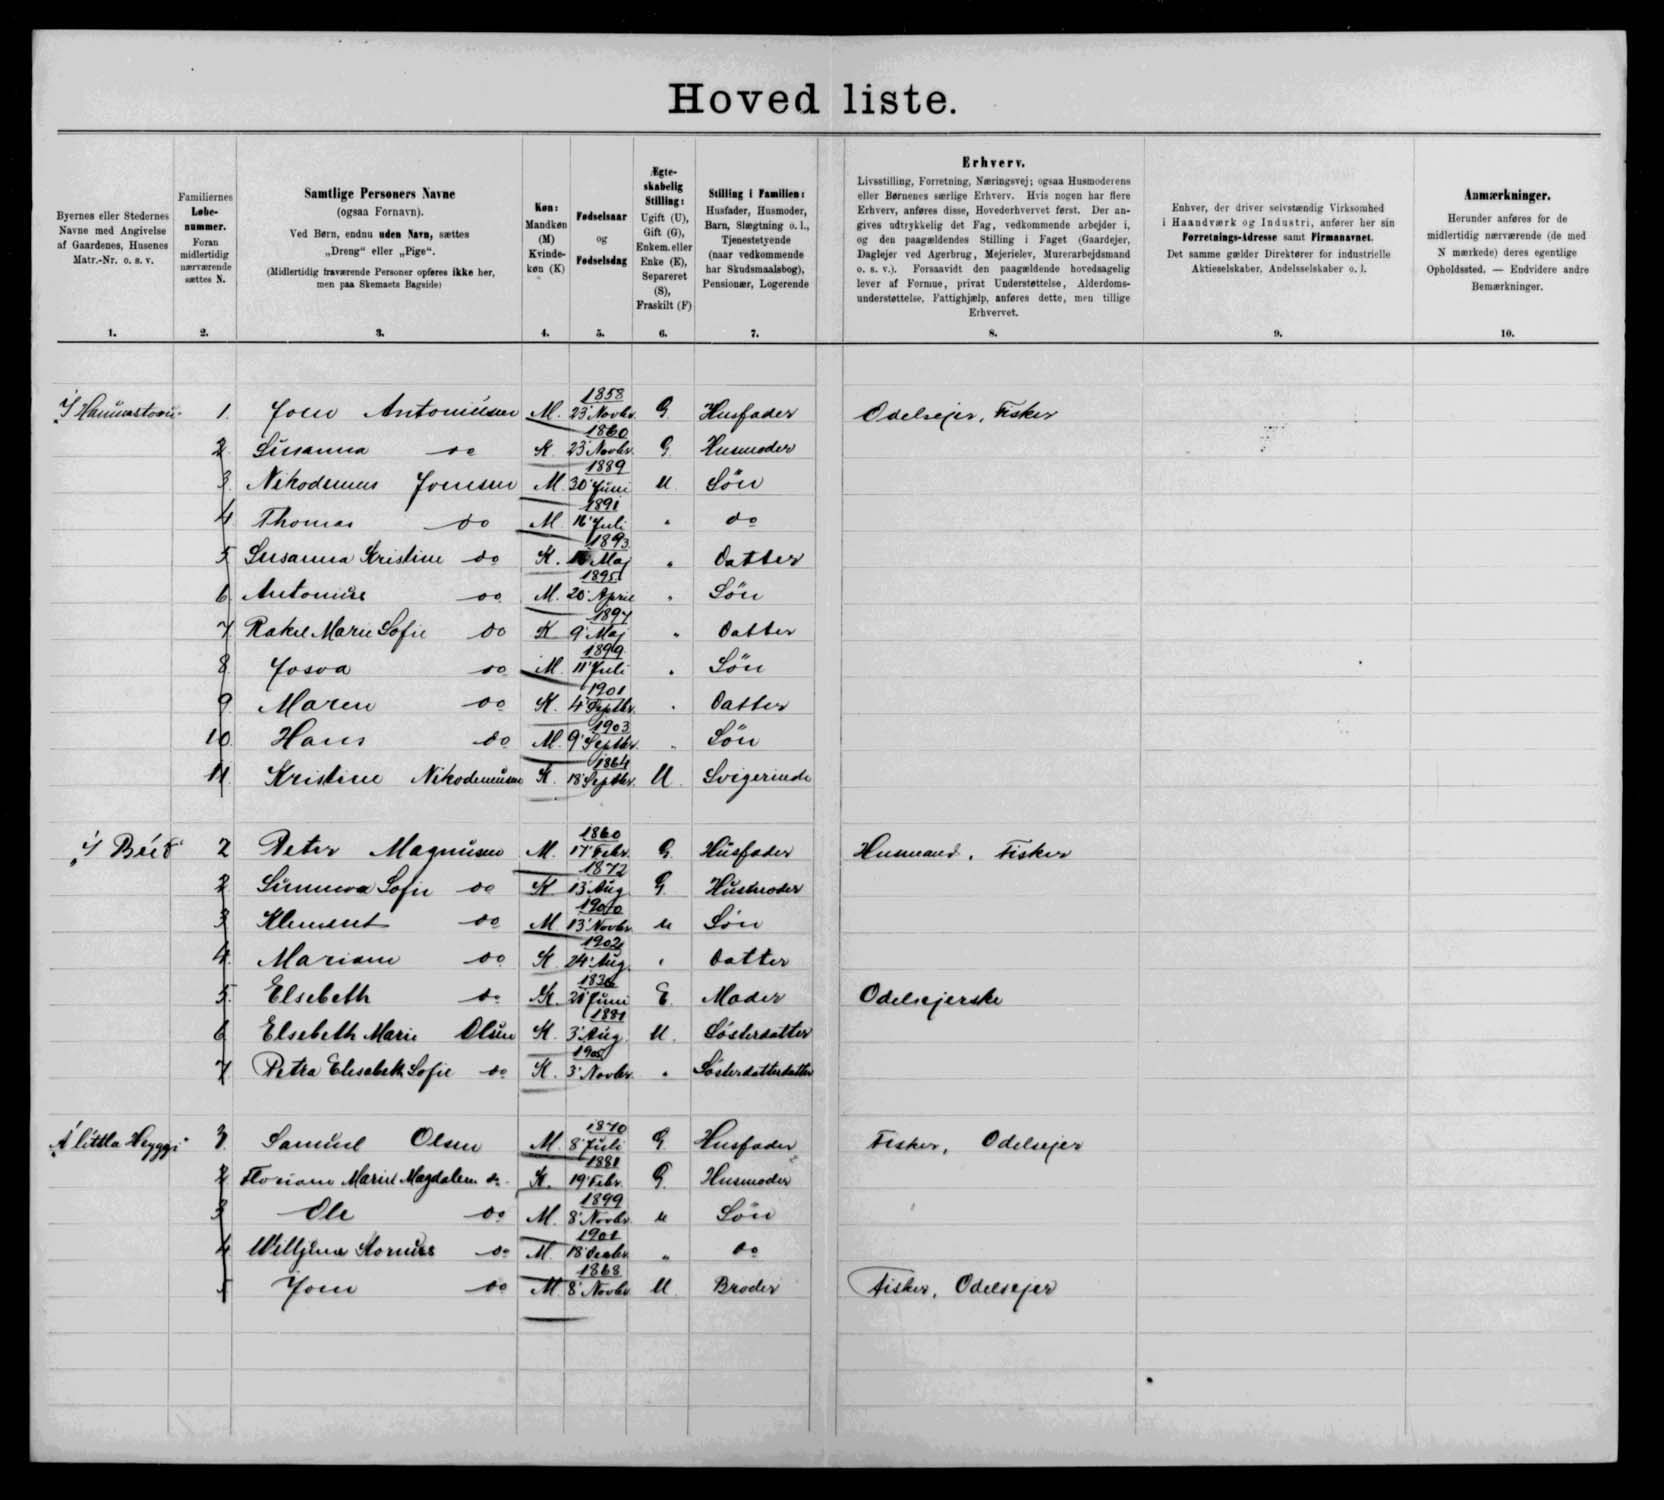 Hoved liste.
Byernes eller Stedernes Navne med Angivelse af Gaardenes, Husenes Matr.-Nr. o. s. v.
1.
Familiernes Løbe-nummer. Foran midlertidig nærværende sættes N.
2.
Samtlige Personers Navne
(ogsaa Fornavn).
Ved Børn, endnu uden Navn, sættes „Dreng“ eller „Pige“.
(Midlertidig fraværende Personer opføres ikke her, men paa Skemaets Bagside)
3.
Køn:
Mandkøn (M) Kvinde-køn (K)
4.
Fødselsaar og Fødselsdag
5.
Ægte-skabelig Stilling:
Ugift (U), Gift (G), Enkem. eller Enke (E), Separeret (S), Fraskilt (F)
6.
Stilling i Familien:
Husfader, Husmoder, Barn, Slægtning o. l., Tjenestetyende (naar vedkommende har Skudsmaalsbog), Pensionær, Logerende
7.
Erhverv.
Livsstilling, Forretning, Næringsvej; ogsaa Husmoderens
eller Børnenes særlige Erhverv. Hvis nogen har flere
Erhverv, anføres disse, Hovederhvervet først. Der an-
gives udtrykkelig det Fag, vedkommende arbejder i,
og den paagældendes Stilling i Faget (Gaardejer,
Daglejer ved Agerbrug, Mejerielev, Murerarbejdsmand
o. s. v.). Forsaavidt den paagældende hovedsagelig
lever af Formue, privat Understøttelse, Alderdoms-
understøttelse, Fattighjælp, anføres dette, men tillige
Erhvervet.
8.
Enhver, der driver selvstændig Virksomhed
i Haandværk og Industri, anfører her sin
Forretnings-Adresse samt Firmanavnet.
Det samme gælder Direktører for industrielle
Aktieselskaber, Andelsselskaber o. l.
9.
Anmærkninger.
Herunder anføres for de
midlertidig nærværende (de med
N mærkede) deres egentlige
Opholdssted. — Endvidere andre
Bemærkninger.
10.
1. Joen Antoniusen M. 1858 23' Novbr. G. Husfader Odelsejer, Fisker
2 Susanna do K. 1860 23' Novbr. G. Husmoder
3. Nikodemus Joensen M. 1889 30' Juni U. Sön
4 Thomas do M. 1891 16' Juli " do
5 Susanna Kristine do K. 1893 Maj " Datter
6 Antonius do M. 1895 20' April " Sön
7 Rakel Marie Sofie do K 1897 9' Maj " Datter
8 Josva do M. 1899 11' Juli " Sön
9 Maren do K. 1901 4' Septbr. " Datter
10. Hans do M. 1903 9' Septbr. " Sön
11. Kristine Nikodemusen K. 1864 18' Septbr. U. Svigerinde
2 Peter Magnusen M. 1860 17' Febr. G. Husfader Husmand, Fisker
2 Sunneva Sofie do K 1872 13' Aug. G. Husmoder
3 Klement do M. 1900 13' Novbr. u Sön
4. Mariane do K. 1902 24' Aug. " Datter
5. Elsebeth do K. Juni E. Moder Odelsejerske
6 Elsebeth Marie Olsen K. 1881 3' Aug. U. Søsterdatter
7 Petra Elisabeth Sofie do K. 1905 3' Novbr. " Søsterdatterdatter
Á lítlu Heyggi 3. Samuel Olsen M. 1870 8' Juli G Husfader Fisker, Odelsejer
2 Marie Magdalene do K. 1881 19' Febr. G. Husmoder
3 Ole do M. 1899 8' Novbr. u Sön
4 do M. 1901 18' Decbr. " do
5 Joen do M 1868 8' Novbr. U. Broder Fisker, Odelsejer